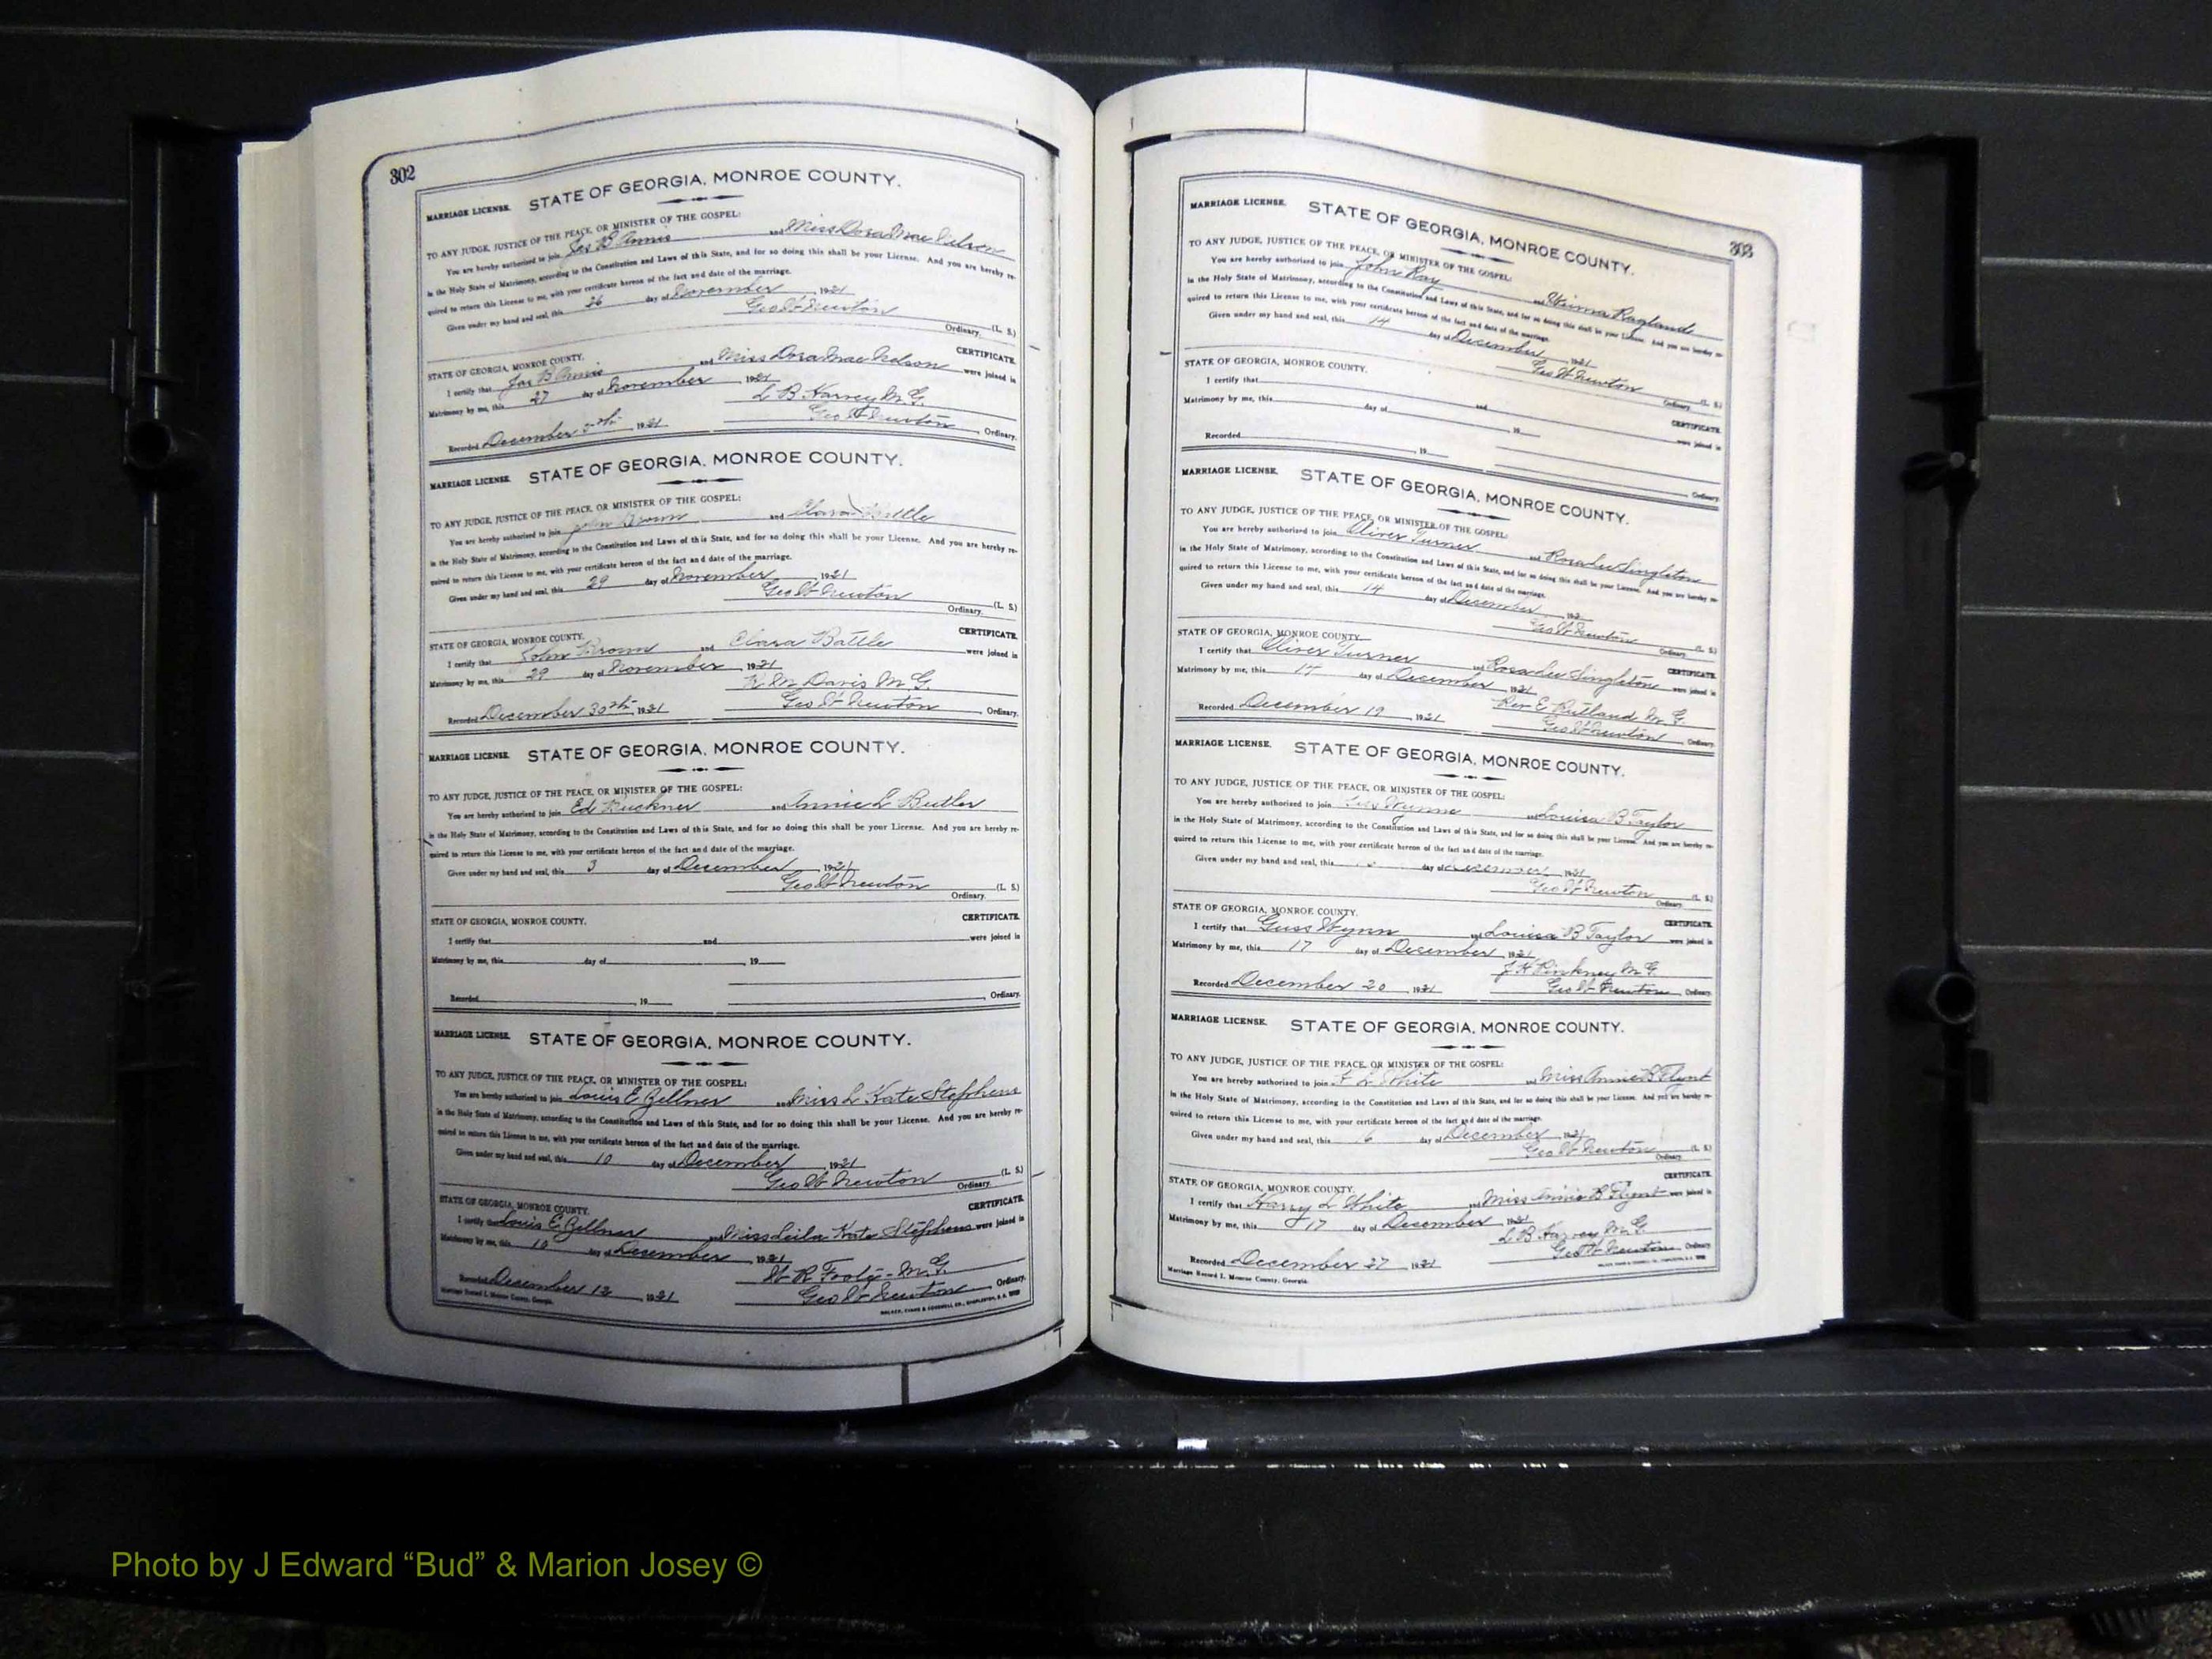 302
STATE OF GEORGIA, MONROE COUNTY.
MARRIAGE LICENSE.
TO ANY JUDGE, JUSTICE OF THE PEACE, OR MINISTER OF THE GOSPEL:
You are hereby authorized to join Jas B and Miss Dora Mae Nelson
in the Holy State of Matrimony, according to the Constitution and Laws of this State, and for so doing this shall be your License. And you are hereby re-
quired to return this License to me, with your certificate hereon of the fact and date of the marriage.
Given under my hand and seal, this 26 day of November, 1921
Geo W Newton (L. S.)
Ordinary.
STATE OF GEORGIA, MONROE COUNTY. CERTIFICATE.
I certify that Jas B and Miss Dora Mae Nelson were joined in
Matrimony by me, this 27 day of November 1921
L B Harvey M.G.
Recorded December 1921 Geo W Newton, Ordinary.
MARRIAGE LICENSE. STATE OF GEORGIA, MONROE COUNTY.
TO ANY JUDGE, JUSTICE OF THE PEACE, OR MINISTER OF THE GOSPEL:
You are hereby authorized to join John Brown and Clara Battle
in the Holy State of Matrimony, according to the Constitution and Laws of this State, and for so doing this shall be your License. And you are hereby re-
quired to return this License to me, with your certificate hereon of the fact and date of the marriage.
Given under my hand and seal, this 29 day of November, 1921
Geo W Newton (L. S.)
Ordinary.
STATE OF GEORGIA, MONROE COUNTY. CERTIFICATE.
I certify that John Brown and Clara Battle were joined in
Matrimony by me, this 29 day of November 1921
Davis M.G.
Recorded December 30th, 1921 Geo W Newton, Ordinary.
MARRIAGE LICENSE. STATE OF GEORGIA, MONROE COUNTY.
TO ANY JUDGE, JUSTICE OF THE PEACE, OR MINISTER OF THE GOSPEL:
You are hereby authorized to join Ed Buckner and Annie L Butler
in the Holy State of Matrimony, according to the Constitution and Laws of this State, and for so doing this shall be your License. And you are hereby re-
quired to return this License to me, with your certificate hereon of the fact and date of the marriage.
Given under my hand and seal, this 3 day of December, 1921
Geo W Newton (L. S.)
Ordinary.
STATE OF GEORGIA, MONROE COUNTY. CERTIFICATE.
I certify that and were joined in
Matrimony by me, this day of , 19
Recorded , 19 , Ordinary.
MARRIAGE LICENSE. STATE OF GEORGIA, MONROE COUNTY.
TO ANY JUDGE, JUSTICE OF THE PEACE, OR MINISTER OF THE GOSPEL:
You are hereby authorized to join Louis E Zellner and Miss L Kate Stephens
in the Holy State of Matrimony, according to the Constitution and Laws of this State, and for so doing this shall be your License. And you are hereby re-
quired to return this License to me, with your certificate hereon of the fact and date of the marriage.
Given under my hand and seal, this 10 day of December, 1921
Geo W Newton (L. S.)
Ordinary.
STATE OF GEORGIA, MONROE COUNTY. CERTIFICATE.
I certify that Louis E Zellner and Miss Leila Kate Stephens were joined in
Matrimony by me, this 10 day of December, 1921
W R Foote - M.G.
Recorded December 12, 1921 Geo W Newton, Ordinary.
Marriage Record I. Monroe County, Georgia. WALKER, EVANS & COGSWELL CO., CHARLESTON, S. C.
303
MARRIAGE LICENSE. STATE OF GEORGIA, MONROE COUNTY.
TO ANY JUDGE, JUSTICE OF THE PEACE, OR MINISTER OF THE GOSPEL:
You are hereby authorized to join John Ray and Raglands
in the Holy State of Matrimony, according to the Constitution and Laws of this State, and for so doing this shall be your License. And you are hereby re-
quired to return this License to me, with your certificate hereon of the fact and date of the marriage.
Given under my hand and seal, this 14 day of December, 1921
Geo W Newton (L. S.)
Ordinary.
STATE OF GEORGIA, MONROE COUNTY. CERTIFICATE.
I certify that and were joined in
Matrimony by me, this day of , 19
Recorded , 19 , Ordinary.
MARRIAGE LICENSE. STATE OF GEORGIA, MONROE COUNTY.
TO ANY JUDGE, JUSTICE OF THE PEACE, OR MINISTER OF THE GOSPEL:
You are hereby authorized to join Oliver Turner and Rosa Lee Singleton
in the Holy State of Matrimony, according to the Constitution and Laws of this State, and for so doing this shall be your License. And you are hereby re-
quired to return this License to me, with your certificate hereon of the fact and date of the marriage.
Given under my hand and seal, this 14 day of December, 192
Geo W Newton (L. S.)
Ordinary.
STATE OF GEORGIA, MONROE COUNTY. CERTIFICATE.
I certify that Oliver Turner and Rosa Lee Singleton were joined in
Matrimony by me, this day of December, 1921
Rev E Rutland M.G.
Recorded December 19, 1921 Geo W Newton, Ordinary.
MARRIAGE LICENSE. STATE OF GEORGIA, MONROE COUNTY.
TO ANY JUDGE, JUSTICE OF THE PEACE, OR MINISTER OF THE GOSPEL:
You are hereby authorized to join Wynne and Louisa B Taylor
in the Holy State of Matrimony, according to the Constitution and Laws of this State, and for so doing this shall be your License. And you are hereby re-
quired to return this License to me, with your certificate hereon of the fact and date of the marriage.
Given under my hand and seal, this day of December, 1921
Geo W Newton (L. S.)
Ordinary.
STATE OF GEORGIA, MONROE COUNTY. CERTIFICATE.
I certify that Guss Wynn and Louisa B Taylor were joined in
Matrimony by me, this 17 day of December, 1921
J H Pinkney M.G.
Recorded December 20, 1921 Geo W Newton, Ordinary.
MARRIAGE LICENSE. STATE OF GEORGIA, MONROE COUNTY.
TO ANY JUDGE, JUSTICE OF THE PEACE, OR MINISTER OF THE GOSPEL:
You are hereby authorized to join L White and Miss Annie B Flynt
in the Holy State of Matrimony, according to the Constitution and Laws of this State, and for so doing this shall be your License. And you are hereby re-
quired to return this License to me, with your certificate hereon of the fact and date of the marriage.
Given under my hand and seal, this 16 day of December, 1921
Geo W Newton (L. S.)
Ordinary.
STATE OF GEORGIA, MONROE COUNTY. CERTIFICATE.
I certify that Harry L White and Miss Annie B Flynt were joined in
Matrimony by me, this 17 day of December, 1921
L B Harvey M.G.
Recorded December 27, 1921 Geo W Newton, Ordinary.
Marriage Record I. Monroe County, Georgia.
Photo by J Edward “Bud” & Marion Josey ©